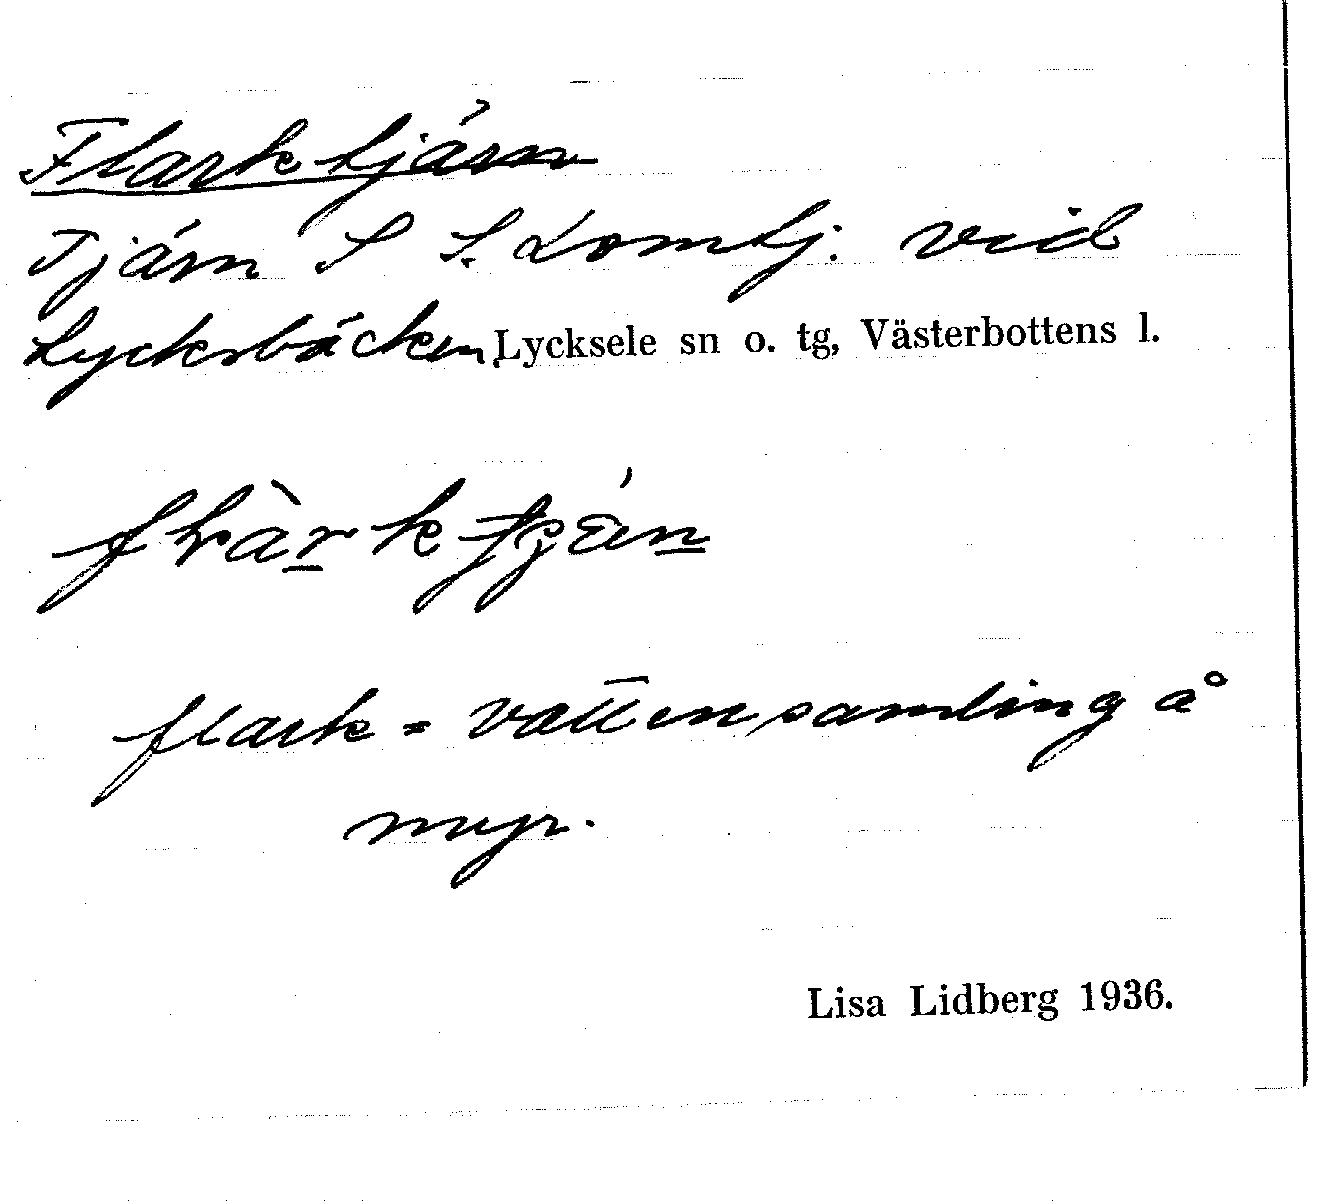 Flarktjärn
Tjärn S S. Lomtj. vid
Lycksbäcken, Lycksele sn o. tg, Västerbottens l.
flark = vattensamling å
myr.
Lisa Lidberg 1936.